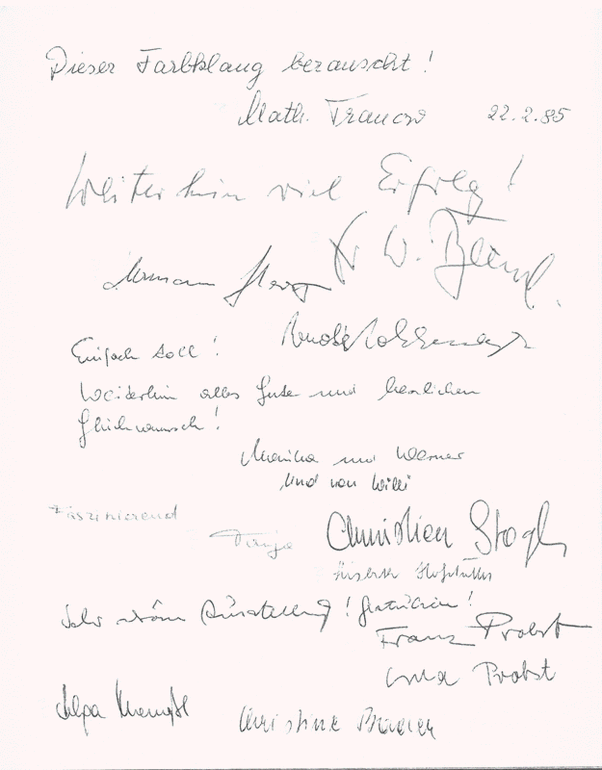 Dieser Farbklang berauscht!
Math.
22.2.85
Weiterhin viel Erfolg!
Dr W.
Einfach toll!
Weiterhin alles Gute und herzlichen
Glückwunsch!
Monika und Werner
und von Willi
Faszinierend
Tanja Christian
Sehr schöne Ausstellung! Gratuliere!
Franz Probst
Probst
Christine